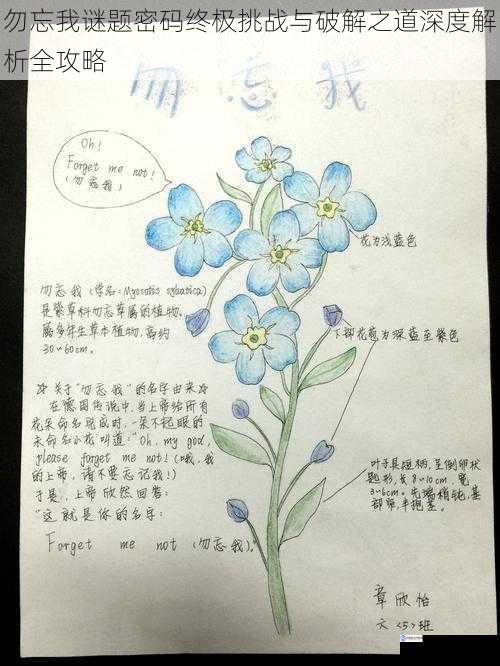 勿忘我谜题密码终极挑战与破解之道深度解
析全攻略
勿忘我
Oh!
Forget me not!
(勿忘我)
花为浅蓝色
勿忘我(学名:Myosotis sylvatica)
是紫草科勿忘草属的植物,
属多年生草本植物,高约
30~60cm。
下部花苞为深蓝至紫色
☆关于"勿忘我"的名字由来☆
在德国传说中,当上帝给所有
花朵命名完成时,一朵不起眼的
未命名小花叫道:"Oh, my god,
please forget me not!(哦,我
的上帝,请不要忘记我!)
于是,上帝欣然回答:
"这就是你的名字:
Forget me not(勿忘我)。
叶子具短柄,呈倒卵状
匙形,长8~10cm,宽
3~6cm。先端稍钝,基
部窄,半抱茎。
章欣怡
六<5>班